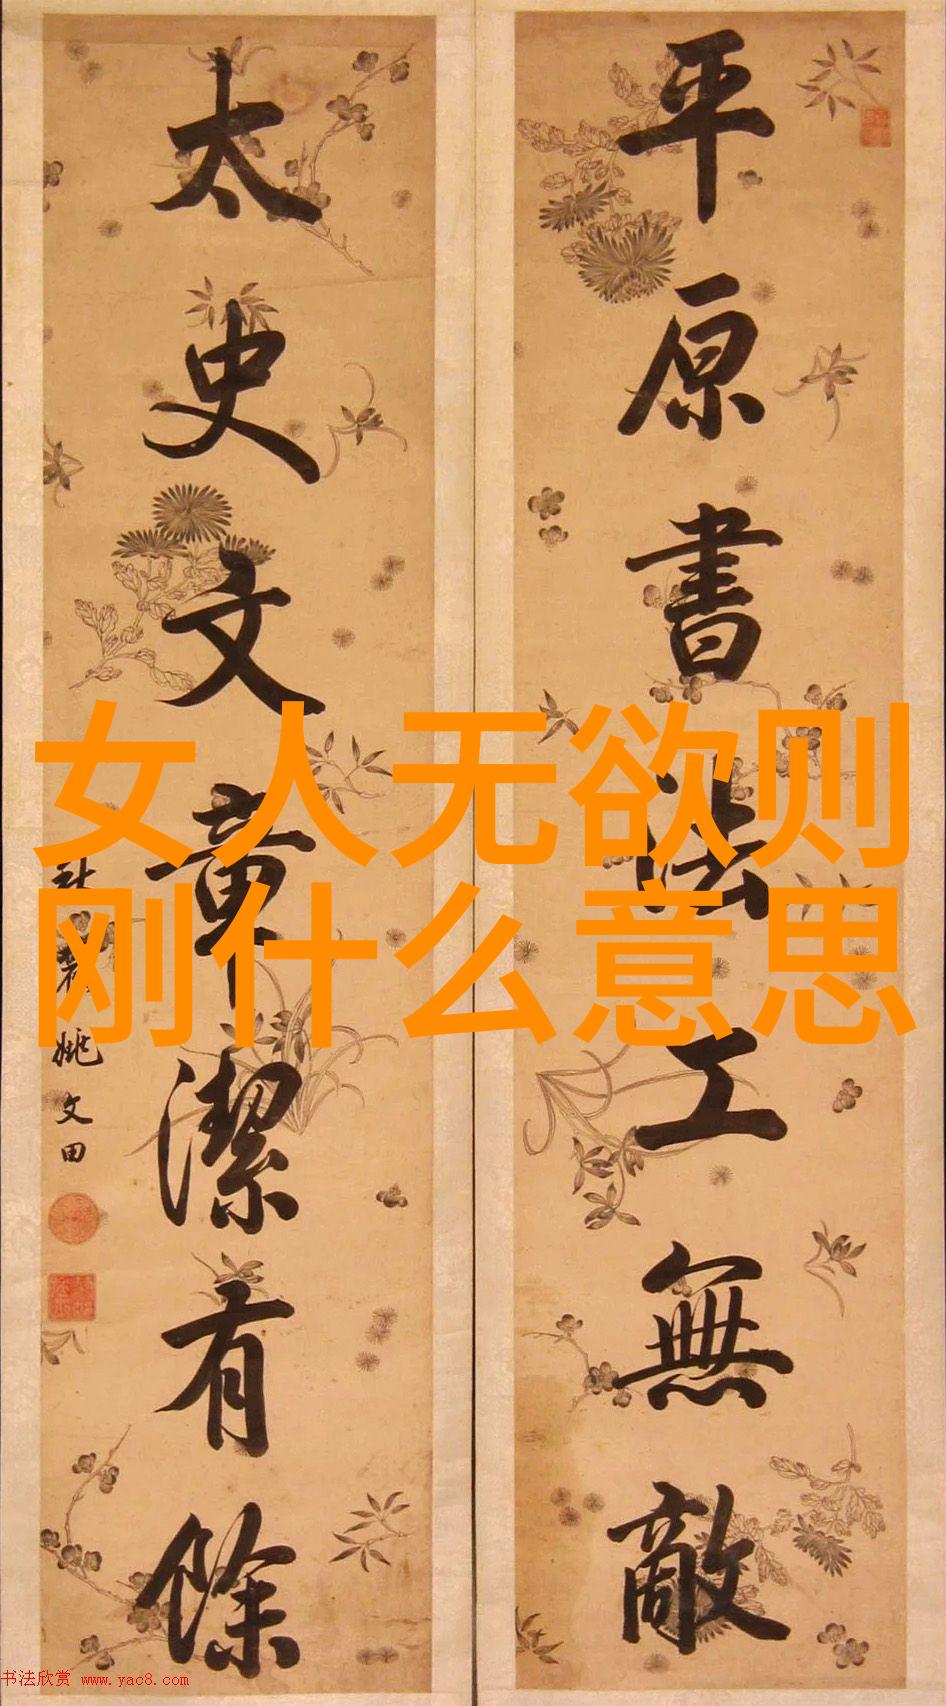 平原書法工無敵
太史文章潔有餘
姚文田
女人无欲则
刚什么意思
书法欣赏 www.yac8.com